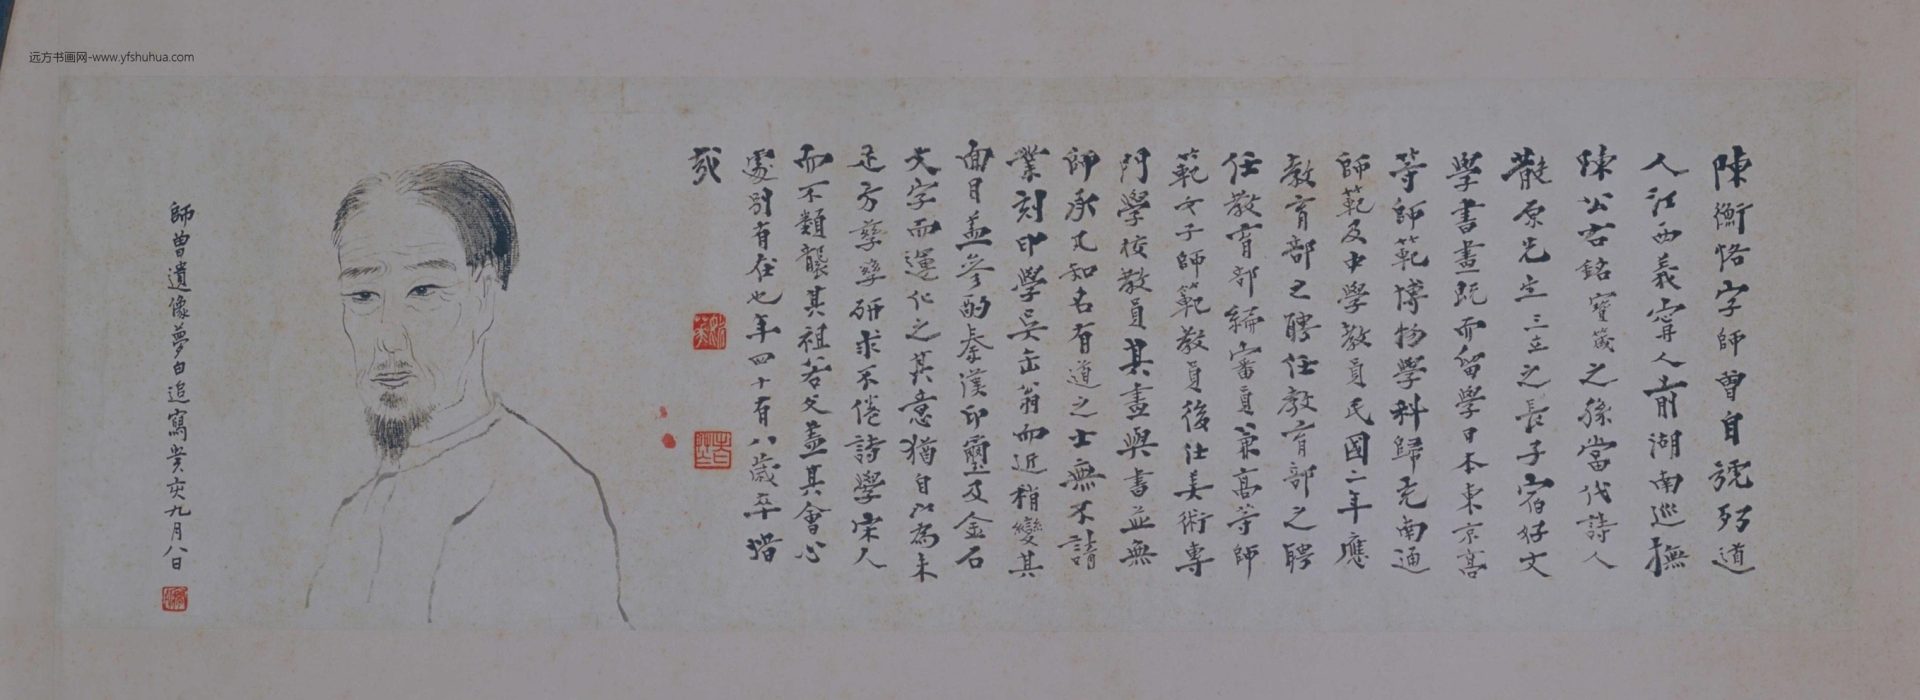 陳衡恪字師曾自號朽道
人江西義寧人前湖南巡撫
陳公右銘寶箴之孫當代詩人
散原先生三立之長子宿好文
學書畫既而留學日本東京高
等師範博物學科歸充南通
師範及中學教員民國二年應
教育部之聘任教育部之聘
任教育部編審員兼高等師
範女子師範教員後仕美術專
門學校教員其畫與書並無
師承凡知名有道之士無不請
業刻印學吳缶翁而近稍變其
面目蓋參酌秦漢印璽及金石
文字而運化之其意猶自以為未
足方孳孳研求不倦詩學宋人
而不類襲其祖若父蓋其會心
處別有在也年四十有八歲卒惜
哉
師曾遺像夢白追寫癸亥九月八日
远方书画网-www.yfshuhua.com